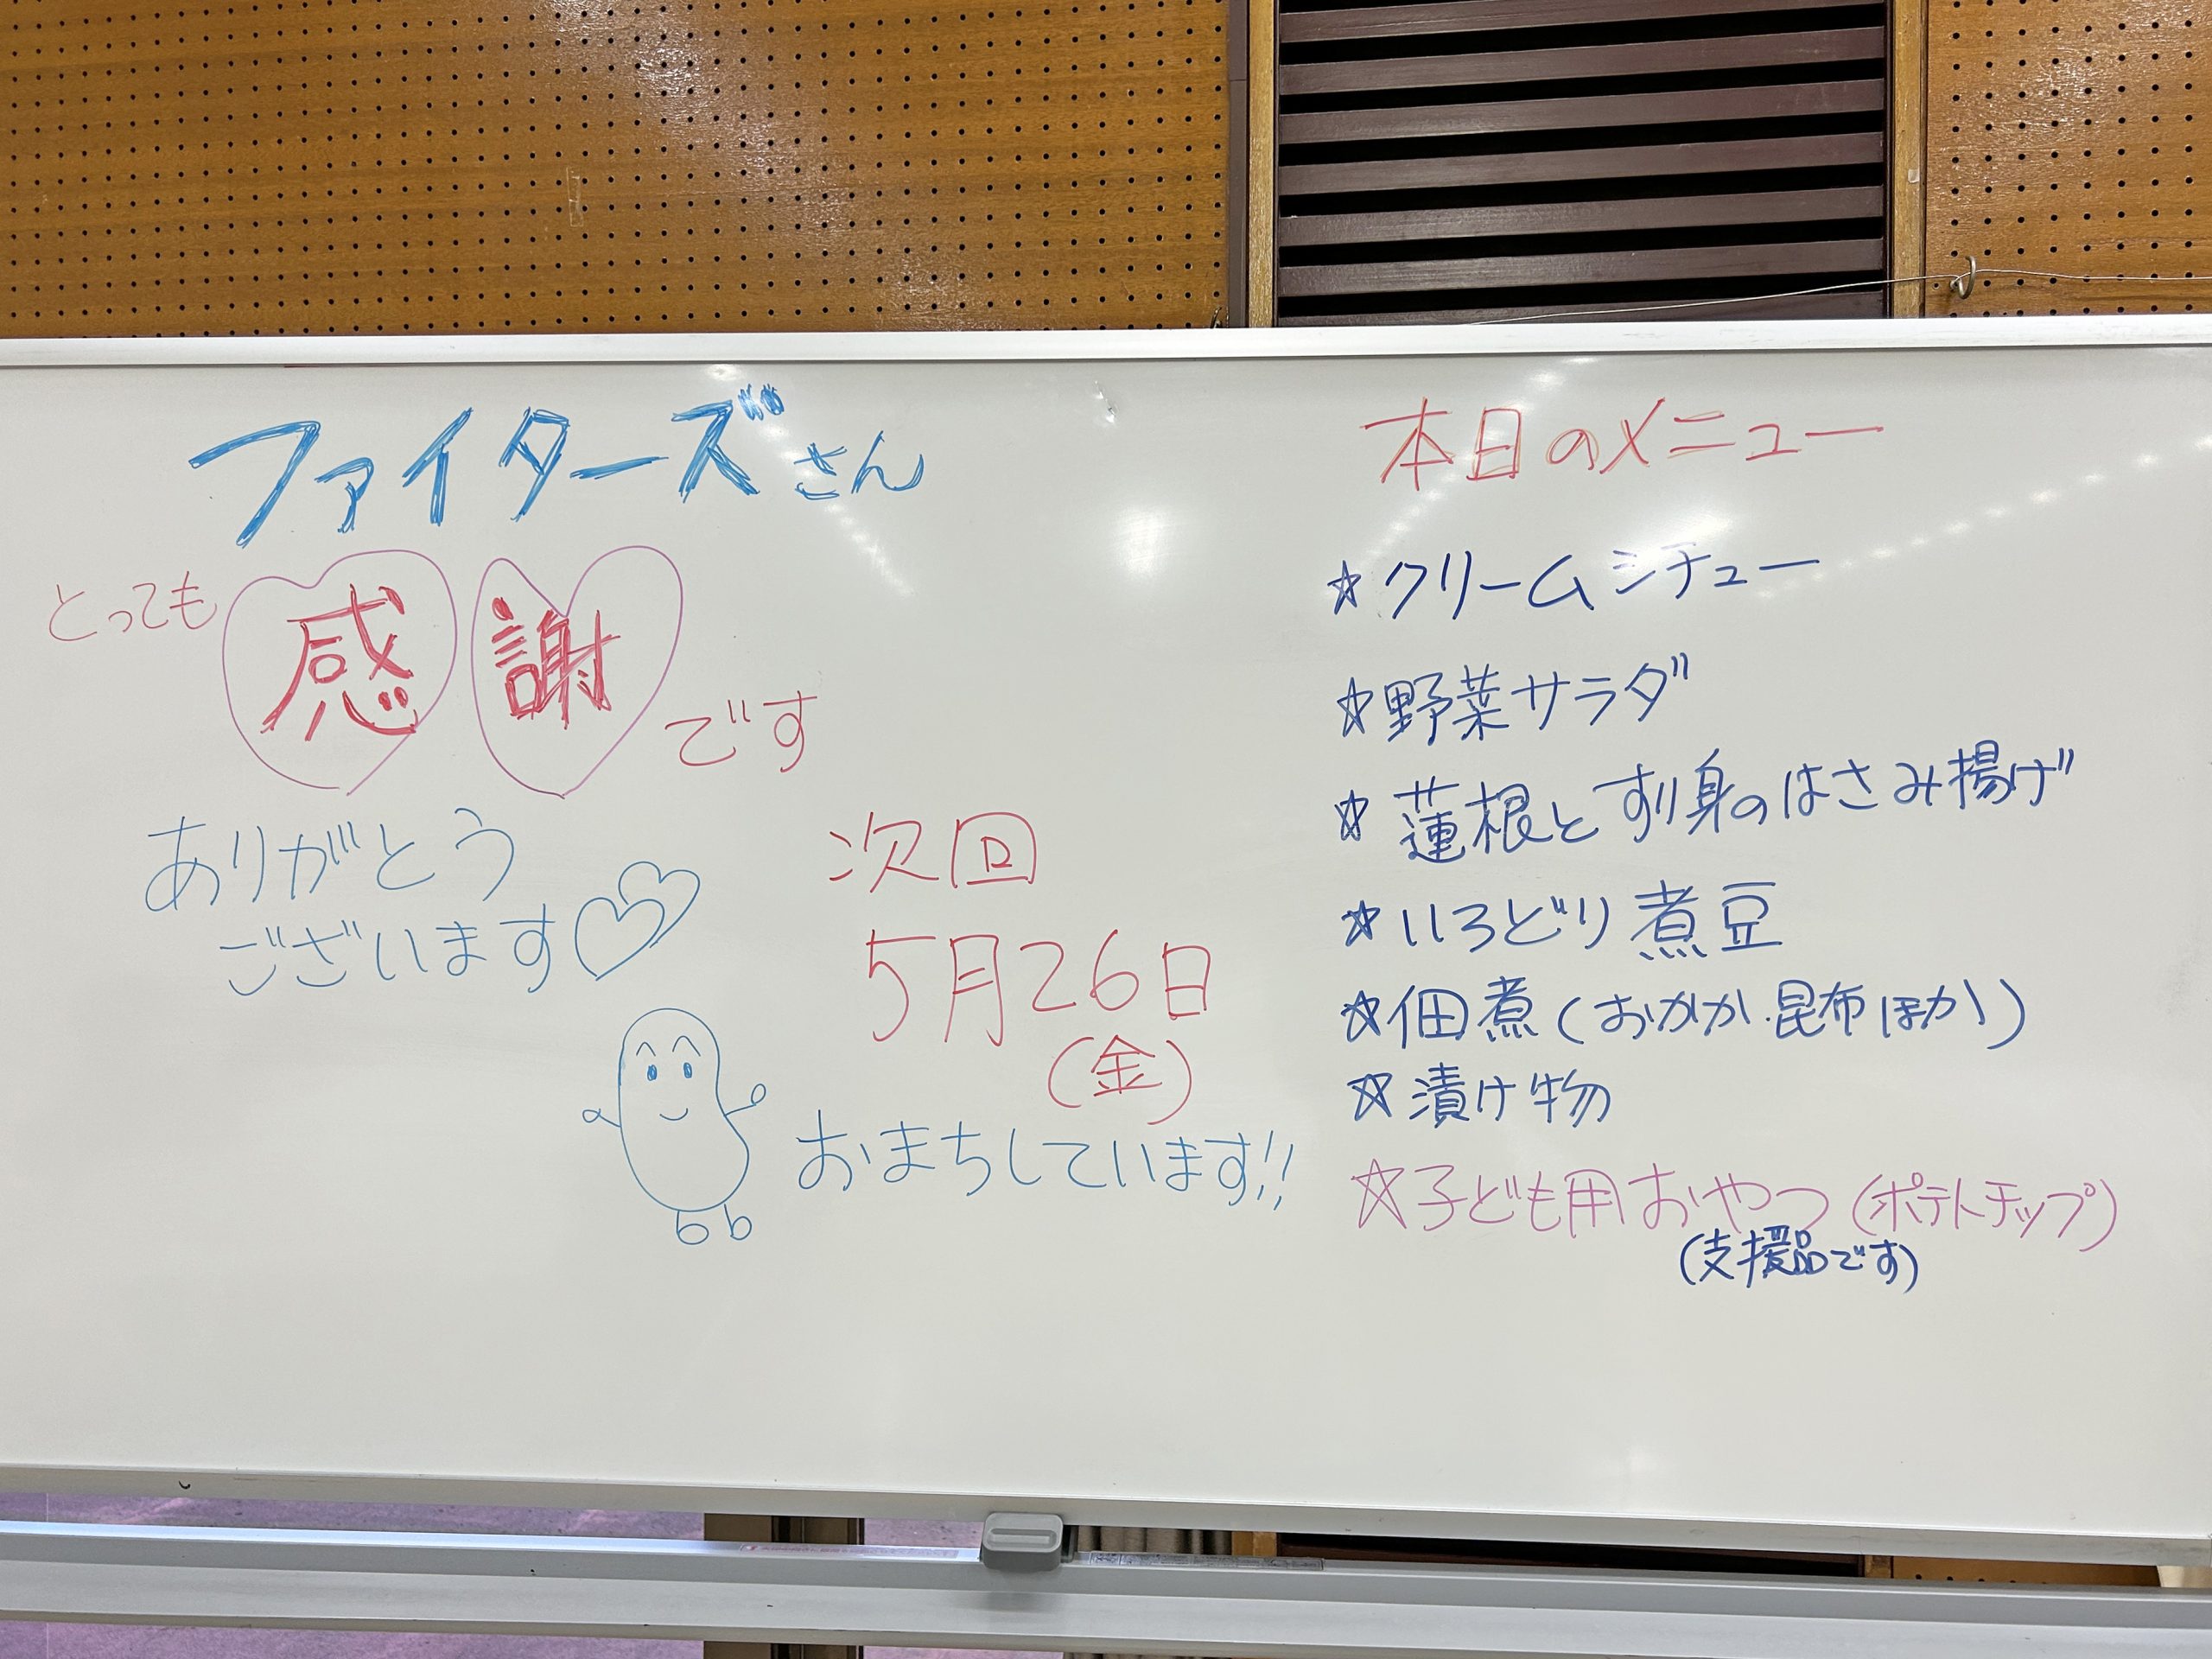 ファイターズさん
とっても感謝です
ありがとう
ございます
次回
5月26日
(金)
おまちしています!!
本日のメニュー
☆クリームシチュー
☆野菜サラダ
☆蓮根とすり身のはさみ揚げ
☆いろどり煮豆
☆佃煮(おかか・昆布ほか)
☆漬け物
☆子ども用おやつ(ポテトチップ)
(支援品です)